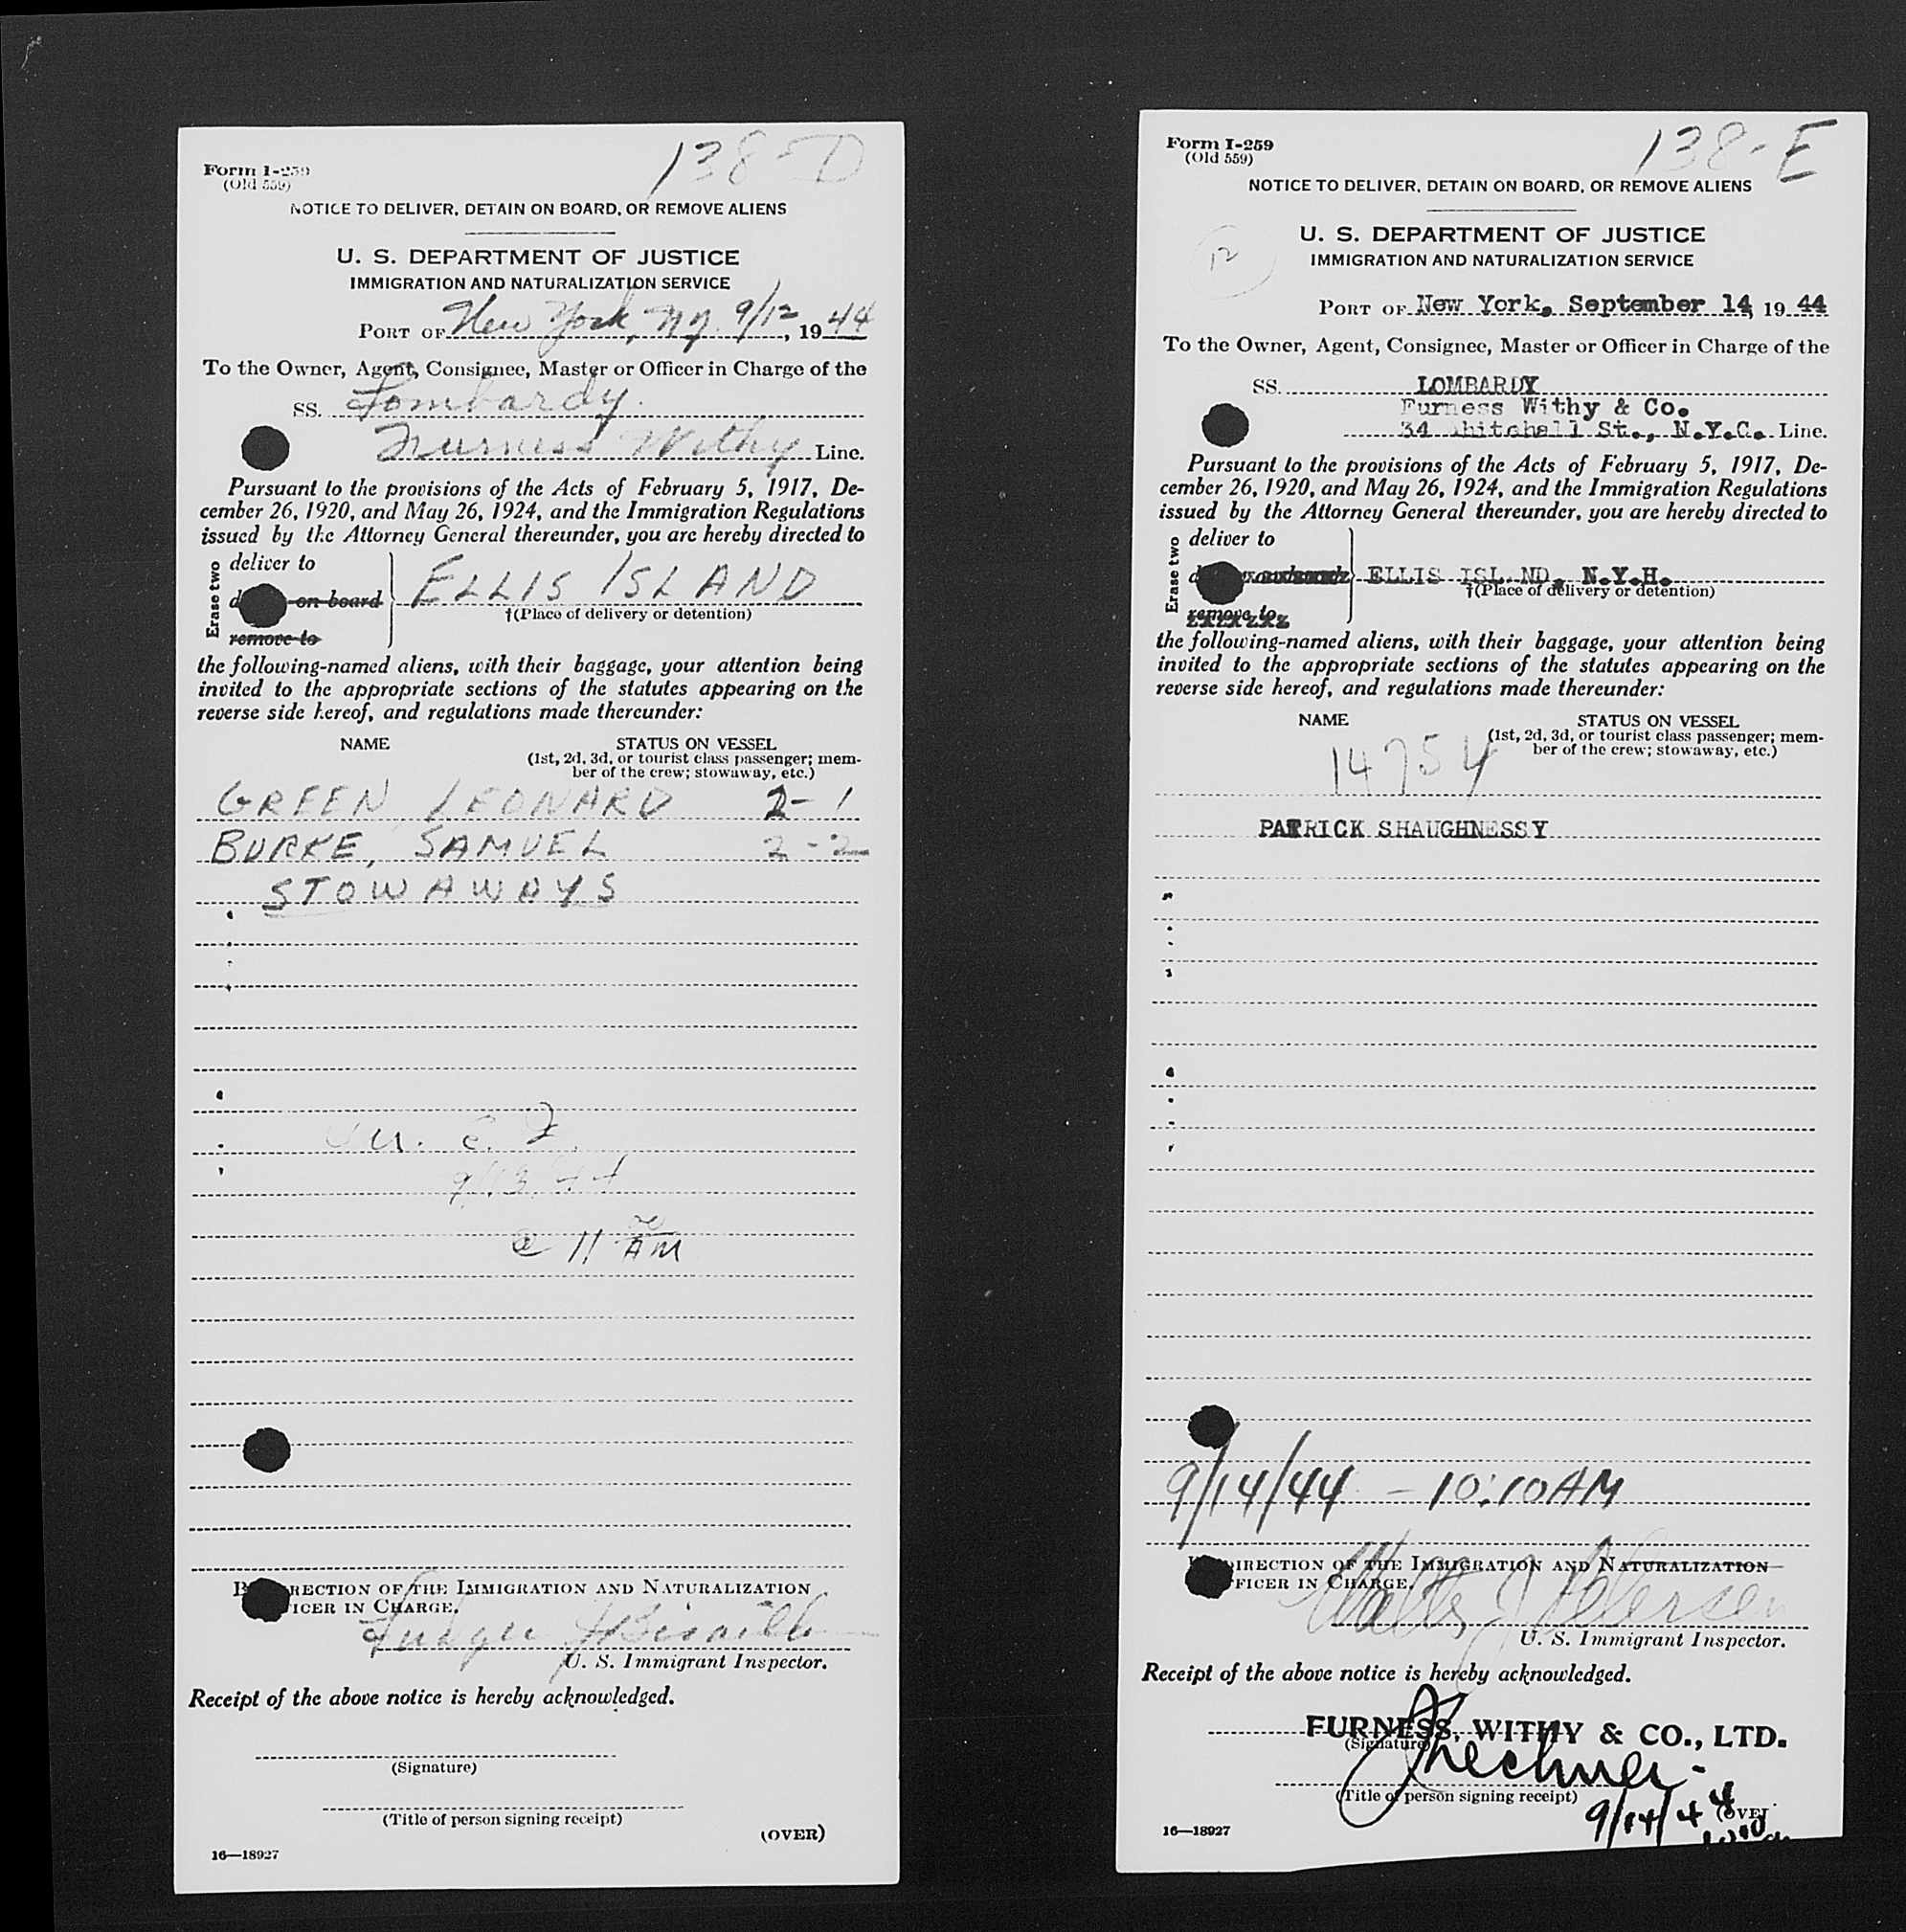 138-D
Form I-259
(Old 559)
NOTICE TO DELIVER, DETAIN ON BOARD, OR REMOVE ALIENS
U. S. DEPARTMENT OF JUSTICE
IMMIGRATION AND NATURALIZATION SERVICE
PORT OF New York, N.Y. 9/12, 1944
To the Owner, Agent, Consignee, Master or Officer in Charge of the
SS. Lombardy
Furness Withy Line.
Pursuant to the provisions of the Acts of February 5, 1917, De-
cember 26, 1920, and May 26, 1924, and the Immigration Regulations
issued by the Attorney General thereunder, you are hereby directed to
Erase two
deliver to
on board
remove to
ELLIS ISLAND
†(Place of delivery or detention)
the following-named aliens, with their baggage, your attention being
invited to the appropriate sections of the statutes appearing on the
reverse side hereof, and regulations made thereunder:
NAME STATUS ON VESSEL
(1st, 2d, 3d, or tourist class passenger; mem-
ber of the crew; stowaway, etc.)
GREEN, LEONARD 2-1
BURKE, SAMUEL 2-2
STOWAWAYS
9/13/44
@ 11 AM
DIRECTION OF THE IMMIGRATION AND NATURALIZATION
OFFICER IN CHARGE.
U. S. Immigrant Inspector.
Receipt of the above notice is hereby acknowledged.
(Signature)
(Title of person signing receipt)
(OVER)
16—18927
138-E
Form I-259
(Old 559)
NOTICE TO DELIVER, DETAIN ON BOARD, OR REMOVE ALIENS
12
U. S. DEPARTMENT OF JUSTICE
IMMIGRATION AND NATURALIZATION SERVICE
PORT OF New York, September 14, 1944
To the Owner, Agent, Consignee, Master or Officer in Charge of the
SS. LOMBARDY
Furness Withy & Co.
34 Whitehall St., N.Y.C. Line.
Pursuant to the provisions of the Acts of February 5, 1917, De-
cember 26, 1920, and May 26, 1924, and the Immigration Regulations
issued by the Attorney General thereunder, you are hereby directed to
Erase two
deliver to
remove to
ELLIS ISLAND, N.Y.H.
†(Place of delivery or detention)
the following-named aliens, with their baggage, your attention being
invited to the appropriate sections of the statutes appearing on the
reverse side hereof, and regulations made thereunder:
NAME STATUS ON VESSEL
(1st, 2d, 3d, or tourist class passenger; mem-
ber of the crew; stowaway, etc.)
14754
PATRICK SHAUGHNESSY
9/14/44 - 10:10 AM
DIRECTION OF THE IMMIGRATION AND NATURALIZATION
OFFICER IN CHARGE.
Petersen
U. S. Immigrant Inspector.
Receipt of the above notice is hereby acknowledged.
FURNESS, WITHY & CO., LTD.
(Signature)
(Title of person signing receipt)
9/14/44
(OVER
16—18927